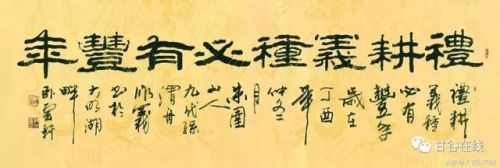 禮耕義種必有豐年
禮耕
義種
必有
豐年
歲在
丁酉
年
仲冬
月
朱圉
山人
九代孫
渭舟
書於
大明湖
畔
卧雲軒
甘谷在线